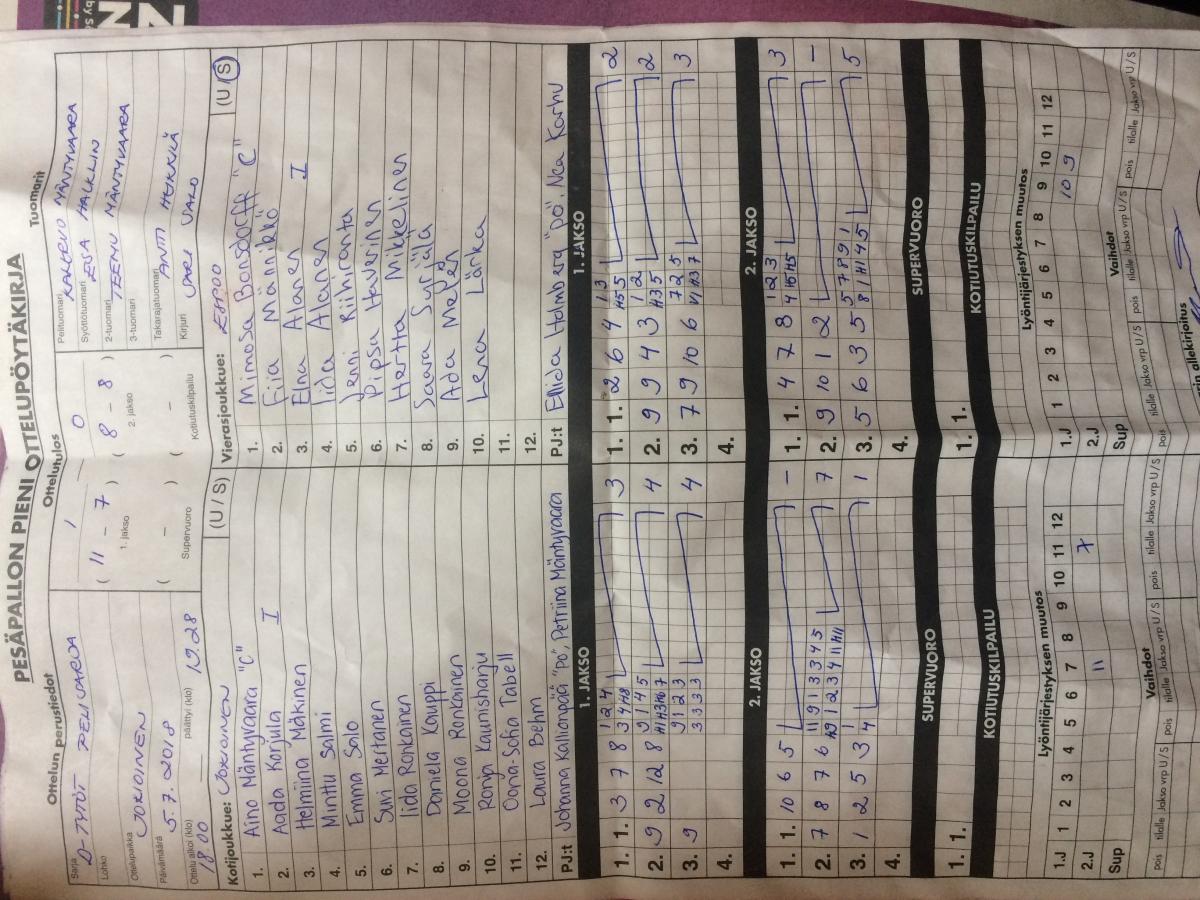 PESÄPALLON PIENI OTTELUPÖYTÄKIRJA
Ottelun perustiedot
Sarja D-TYTÖT
Lohko
Ottelupaikka JOKIOINEN
Päivämäärä 5.7.2018
Ottelu alkoi (klo) 18.00 päättyi (klo) 19.28
Ottelutulos
1 0
( 11 - 7 ) ( 8 - 8 )
1. jakso 2. jakso
( - ) ( - )
Supervuoro Kotiutuskilpailu
Tuomarit
Pelituomari KALLEVO MÄNTYVAARA
Syöttötuomari ESSA
2-tuomari TEEMU MÄNTYVAARA
3-tuomari
Takarajatuomari ANTTI
Kirjuri JARI VALO
Kotijoukkue: JOKIOINEN (U / S)
1. Aino Mäntyvaara "C"
2. Aada Korjula I
3. Helmiina Mäkinen
4. Minttu Salmi
5. Emma Salo
6. Suvi Metanen
7. Iida Ronkainen
8. Daniela Kauppi
9. Moona Ronkainen
10. Ronja Kaunisharju
11. Oona-Sofia Tabell
12. Laura Behm
PJ:t Johanna Kallionpää "PO", Petriina Mäntyvaara
Vierasjoukkue: ESPOO (U / S)
1. Mimosa Bonsdorff "C"
2. Fiia Männikkö
3. Elna Alanen I
4. Iida Alanen
5. Jenni Riihiranta
6. Pipsa Haverinen
7. Hertta Mikkelinen
8. Saara Syrjälä
9. Ada Melén
10. Lena Lärka
11.
12.
PJ:t Ellida Holmberg "PO", Nea Karhu
1. JAKSO
1. 1. 3 7 8 1 2 4 3
3 4 H8
2. 9 2 12 8 9 1 4 5 4
3. 9 9 1 2 3 4
3 3 3 3
4.
1. JAKSO
1. 1. 2 6 4 1 3 2
H5 5
2. 9 9 4 3 1 2 2
H3 5
3. 7 9 10 6 7 2 5 3
4.
2. JAKSO
1. 1. 10 6 5 -
2. 7 8 7 6 11 9 1 3 3 4 5 7
3. 1 2 5 3 1 1
4
4.
2. JAKSO
1. 1. 4 7 8 1 2 3 3
4 H5 H5
2. 9 10 1 2 -
3. 5 6 3 5 5 7 8 9 1 5
4.
SUPERVUORO
1. 1.
KOTIUTUSKILPAILU
SUPERVUORO
1. 1.
KOTIUTUSKILPAILU
Lyöntijärjestyksen muutos
1 2 3 4 5 6 7 8 9 10 11 12
1.J 7
2.J 11
Sup
Vaihdot
pois tilalle Jakso vrp U / S pois tilalle Jakso vrp U / S
Lyöntijärjestyksen muutos
1 2 3 4 5 6 7 8 9 10 11 12
1.J 10 9
2.J
Sup
Vaihdot
pois tilalle Jakso vrp U / S tilalle Jakso vrp U / S pois tilalle Jakso vrp U / S
allekirjoitus